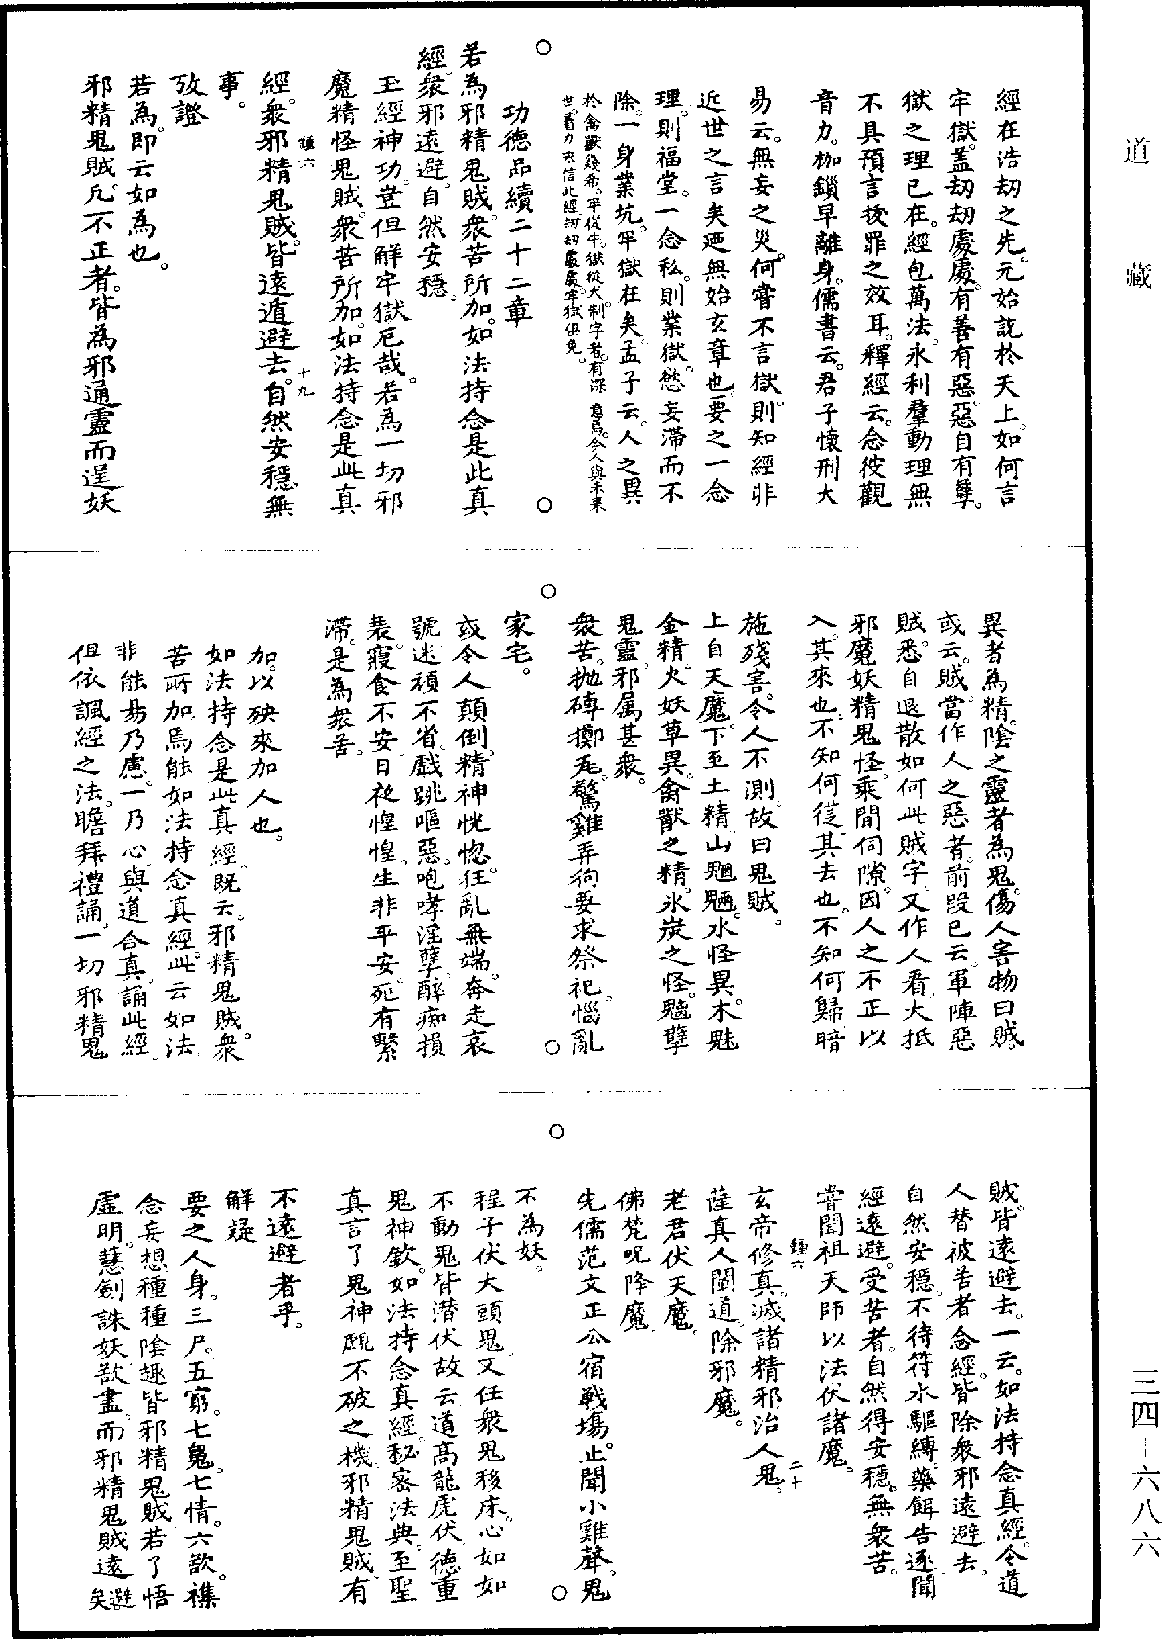 道藏
三四-六八六
經在浩劫之先。元始說於天上。如何言
牢獄。蓋劫劫處處。有善有惡。惡自有孽。
獄之理已在。經包萬法。永利羣動。理無
不具。預言後罪之效耳。釋經云。念彼觀
音力。枷鎖早離身。儒書云。君子懷刑。大
易云。無妄之災。何嘗不言獄。則知經非
近世之言矣。迺無始玄章也。要之一念
理。則福堂。一念私。則業獄。慾妄滯而不
除。一身業坑。牢獄在矣。孟子云。人之異
於禽獸幾希。牢從牛。獄從犬。制字者。有深意焉。今人與未來
世。着力求信此經。劫劫處處。牢獄俱免。
功德品續二十二章
若為邪精鬼賊。衆苦所加。如法持念是此真
經。衆邪遠避。自然安穩。
玉經神功。豈但解牢獄厄哉。若為一切邪
魔精怪鬼賊。衆苦所加。如法持念是此真
經。衆邪精鬼賊。皆遠遁避去。自然安穩。無
鍾六
十九
事。
攷證
若為。即云如為也。
邪精鬼賊。凡不正者。皆為邪。通靈而逞妖
異者為精。陰之靈者為鬼。傷人害物曰賊。
或云。賊。當作人之惡者。前段已云。軍陣惡
賊。悉自退散。如何此賊字。又作人看。大抵
邪魔妖精鬼怪。乘間伺隙。因人之不正以
入。其來也。不知何從。其去也。不知何歸。暗
施殘害。令人不測。故曰鬼賊。
上自天魔。下至土精。山魈魎。水怪異。木魅
金精。火妖草異。禽獸之精。氷炭之怪。魑孽
鬼靈。邪属甚衆。
衆苦。拋磚擲瓦。驚雞弄狗。要求祭祀。惱亂
家宅。
或令人顛倒。精神恍惚。狂亂無端。奔走哀
號。迷頑不省。戲跳嘔惡。咆哮淫孽。醉痴損
裝。寢食不安。日夜惶惶。生非平安。死有繫
滯。是為衆苦。
加。以殃來加人也。
如法持念是此真經。既云。邪精鬼賊。衆
苦所加。焉能如法持念真經。此云如法。
非能易乃慮。一乃心。與道合真。誦此經。
但依諷經之法。瞻拜禮誦。一切邪精鬼
賊。皆遠避去。一云。如法持念真經。令道
人替彼苦者念經。皆除衆邪遠避去。
自然安穩。不待符水驅縛。藥餌告逐。聞
經遠避。受苦者。自然得安穩。無衆苦。
嘗聞祖天師以法伏諸魔。
鍾六
二十
玄帝修真。滅諸精邪。治人鬼。
薩真人闡道。除邪魔。
老君伏天魔。
佛梵呪降魔。
先儒范文正公宿戰場。止聞小雞聲。鬼
不為妖。
程子伏大頭鬼。又任衆鬼移床。心如如
不動。鬼皆潛伏。故云。道高龍虎伏。德重
鬼神欽。如法持念真經。秘密法典。至聖
真言。了鬼神覷不破之機。邪精鬼賊。有
不遠避者乎。
解疑
要之人身。三尸。五窮。七魄。七情。六欲。襍
念妄想。種種陰趣。皆邪精鬼賊。若了悟
虛明。慧劍誅妖。欲盡。而邪精鬼賊遠避矣。